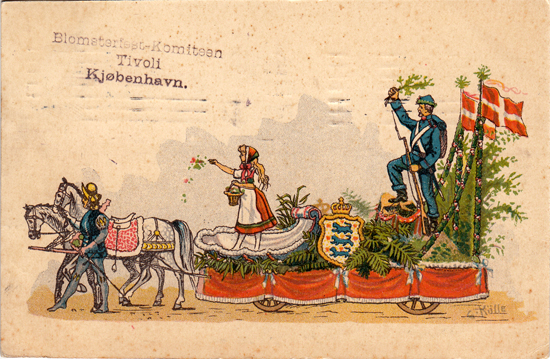 Blomsterfest-Komiteen
Tivoli
Kjøbenhavn.